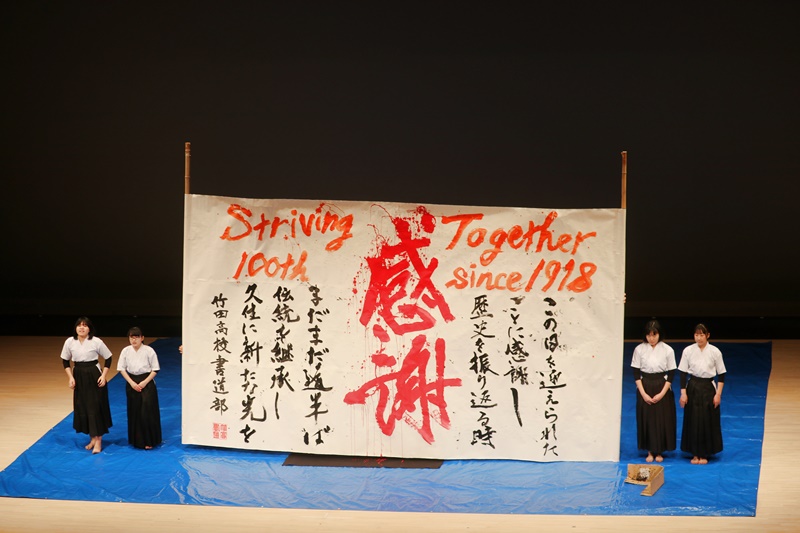 Striving Together
100th since 1918
感謝
この日を迎えられた
ことに感謝し
歴史を振り返る時
まだまだ道半ば
伝統を継承し
久住に新たな光を
竹田高校書道部